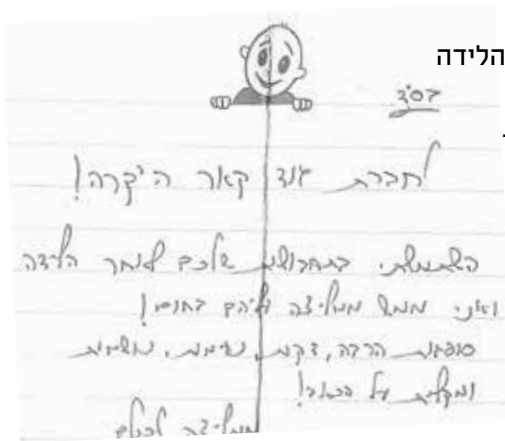 הלידה
בס"ד
לחברת גוד קאר היקרה!
השתמשתי בתחבושות שלכם לאחר הלידה
ואני ממש ממליצה עליהם בחום!
סופגות הרבה, דקות, נעימות, נושמות
ומקלות על הכאב!
ממליצה לכולם